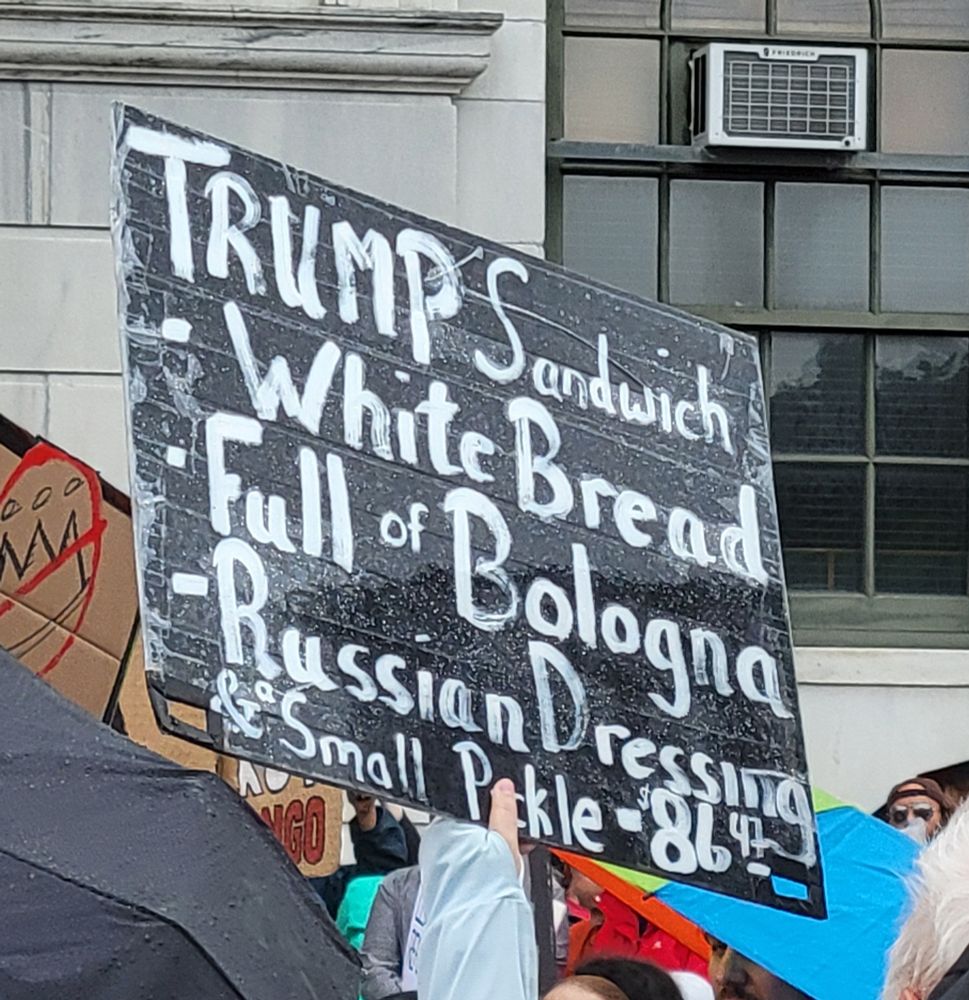 FRIEDRICH
TRUMP'S Sandwich
- White Bread
- Full of Bologna
- Russian Dressing
& a Small Pickle - $86 47
NGO